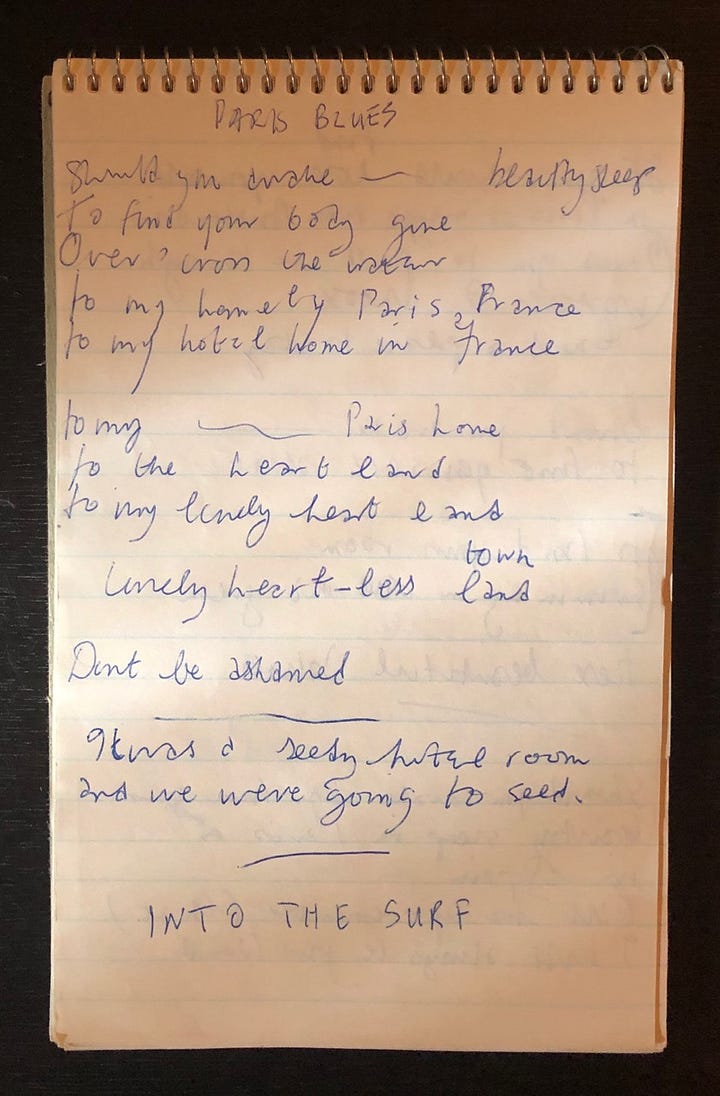 PARIS BLUES
Should you awake — beauty sleep
To find your body gone
Over 'cross the water
to my homely Paris, France
to my hotel home in France
to my — Paris home
to the heart land
to my lonely heart land
town
lonely heart-less land
Dont be ashamed
It was a seedy hotel room
and we were going to seed.
INTO THE SURF